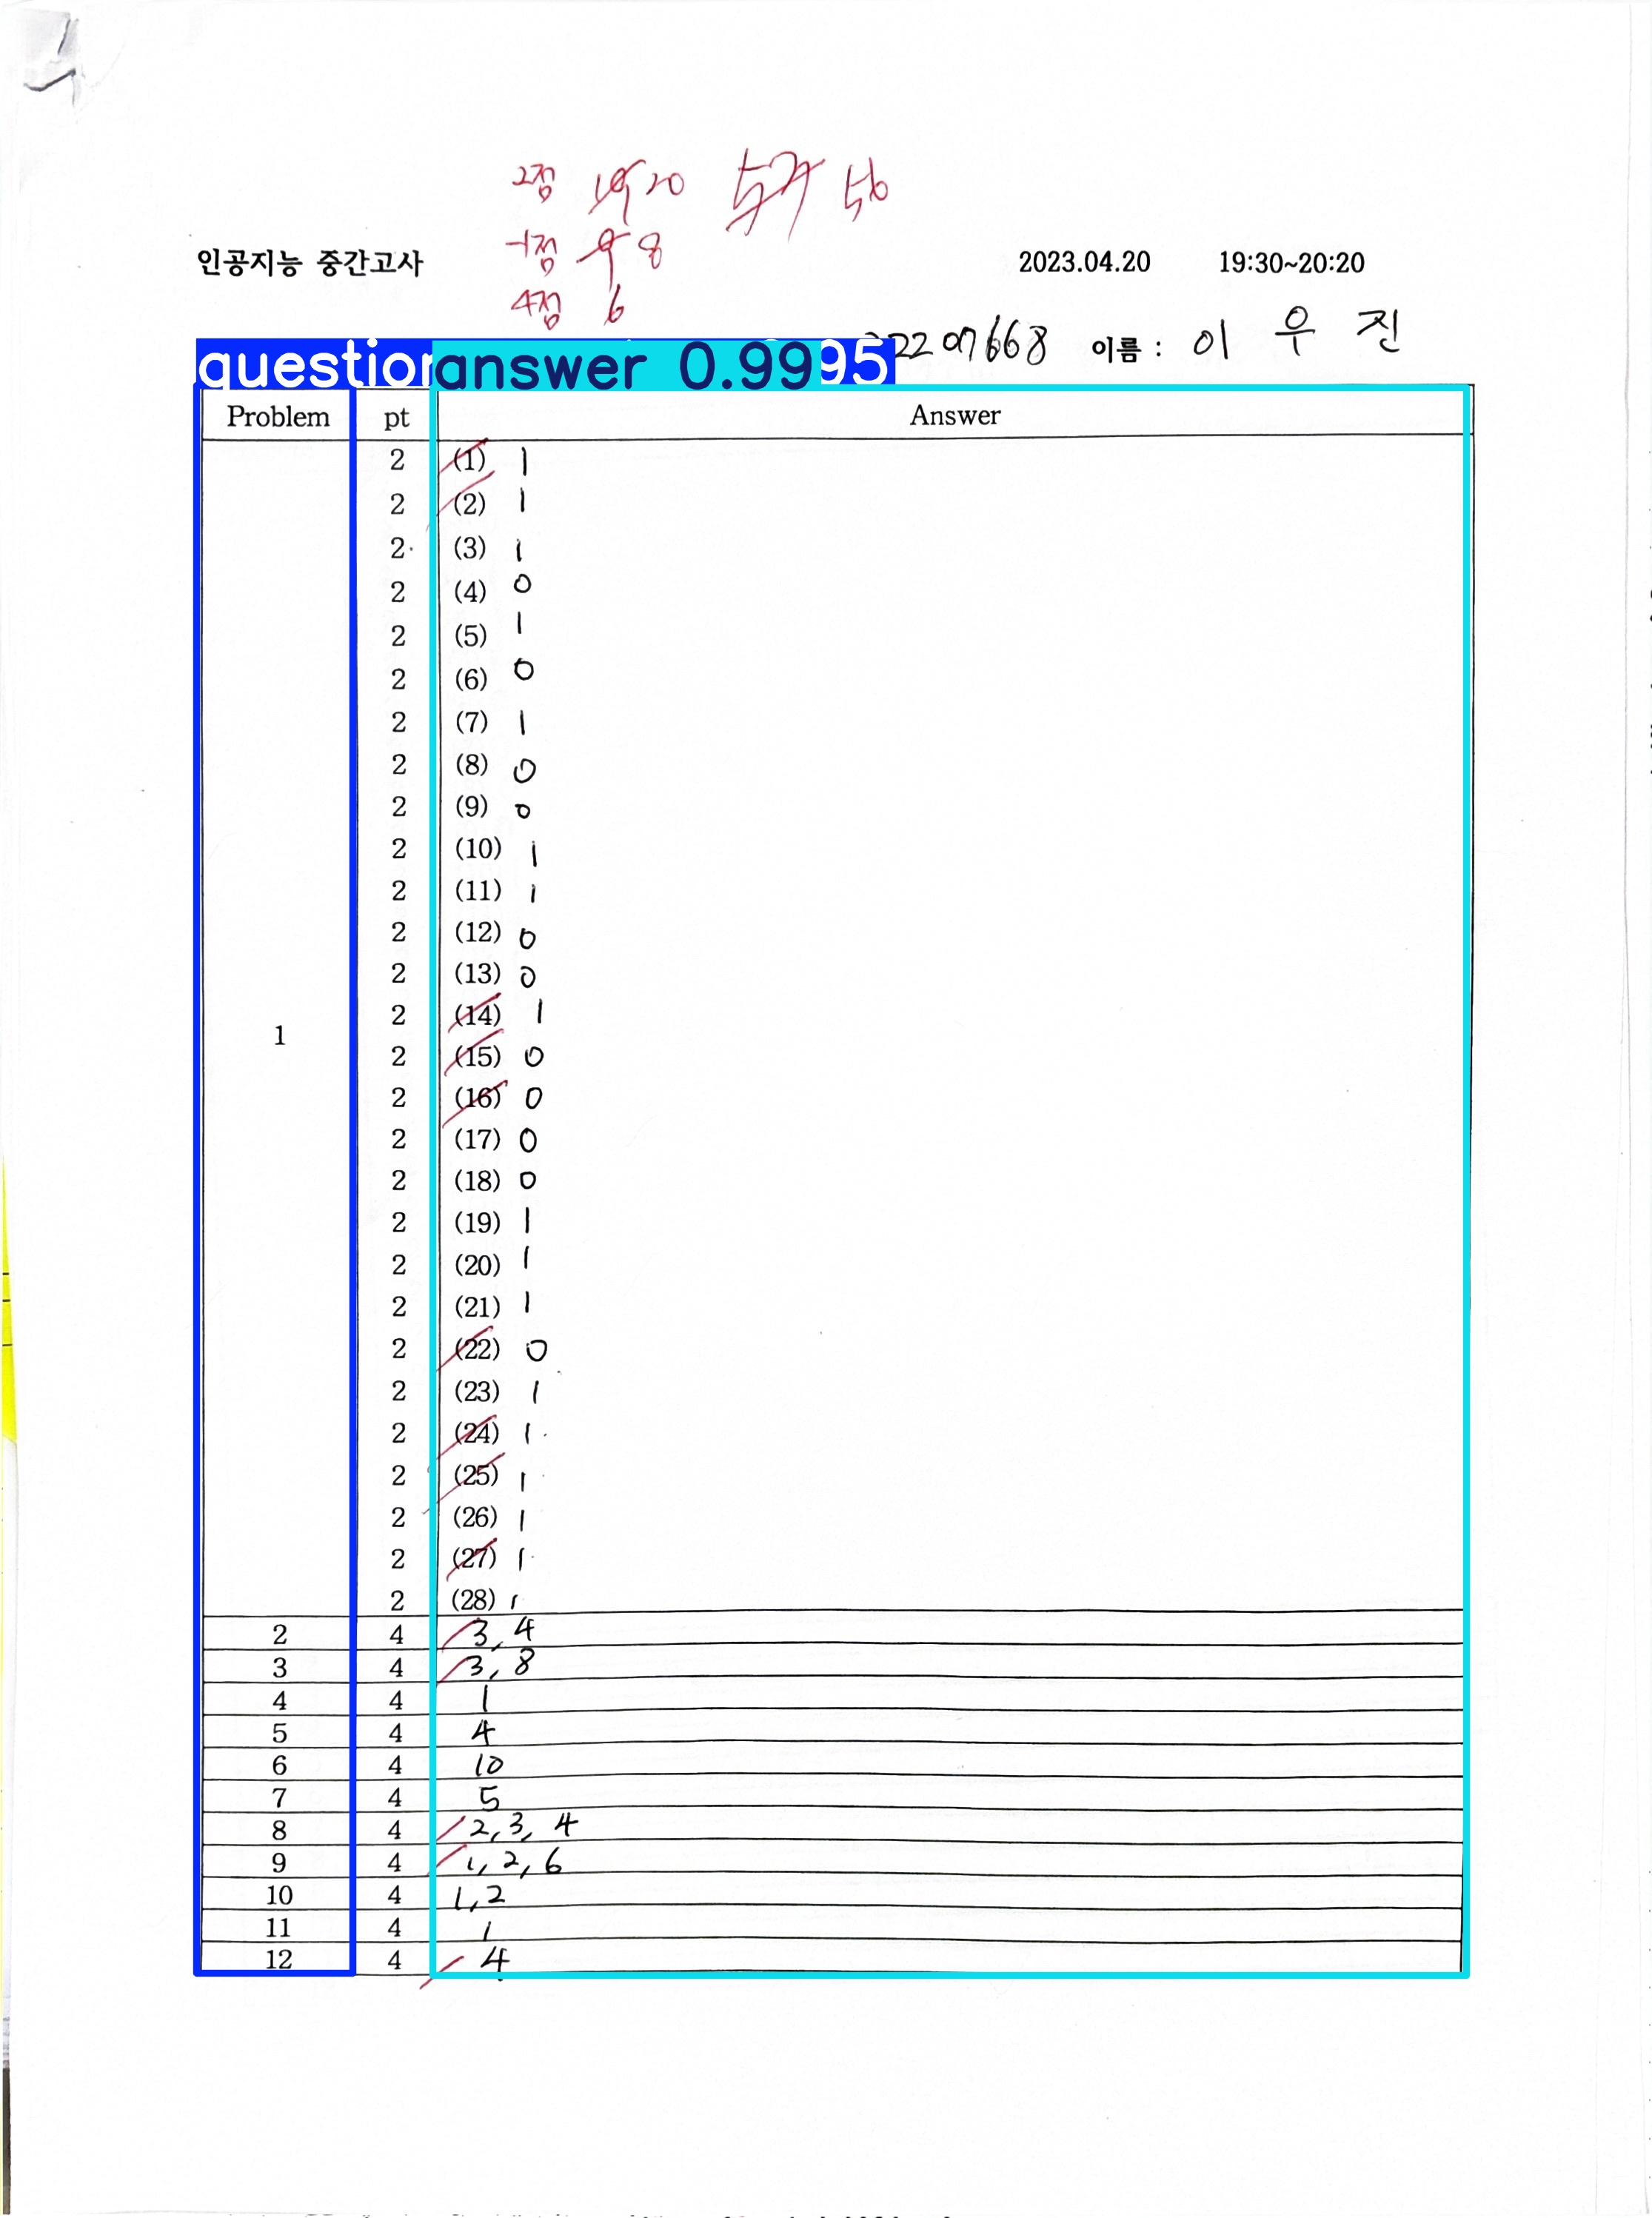 2점 20 56
-1점 8
인공지능 중간고사 2023.04.20 19:30~20:20
4점 6
2207668 이름 : 이 우 진
question answer 0.9995
Problem pt Answer
2 (1) 1
2 (2) 1
2 (3) 1
2 (4) 0
2 (5) 1
2 (6) 0
2 (7) 1
2 (8) 0
2 (9) 0
2 (10) 1
2 (11) 1
2 (12) 0
2 (13) 0
2 (14) 1
1
2 (15) 0
2 (16) 0
2 (17) 0
2 (18) 0
2 (19) 1
2 (20) 1
2 (21) 1
2 (22) 0
2 (23) 1
2 (24) 1
2 (25) 1
2 (26) 1
2 (27) 1
2 (28) 1
2 4 3, 4
3 4 3, 8
4 4 1
5 4 4
6 4 10
7 4 5
8 4 2,3, 4
9 4 1, 2, 6
10 4 1,2
11 4 1
12 4 4